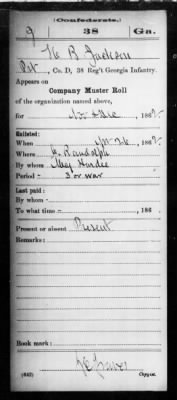 (Confederate.)
9 38 Ga.
Jackson
Pvt, Co. D, 38 Reg't Georgia Infantry.
Appears on
Company Muster Roll
of the organization named above,
for Nov & Dec, 186
Enlisted:
When 26, 186
Where C. Randolph
By whom Maj Hardee
Period 3 or war
Last paid:
By whom
To what time , 186
Present or absent Present
Remarks:
Book mark:
(642) Copyist.